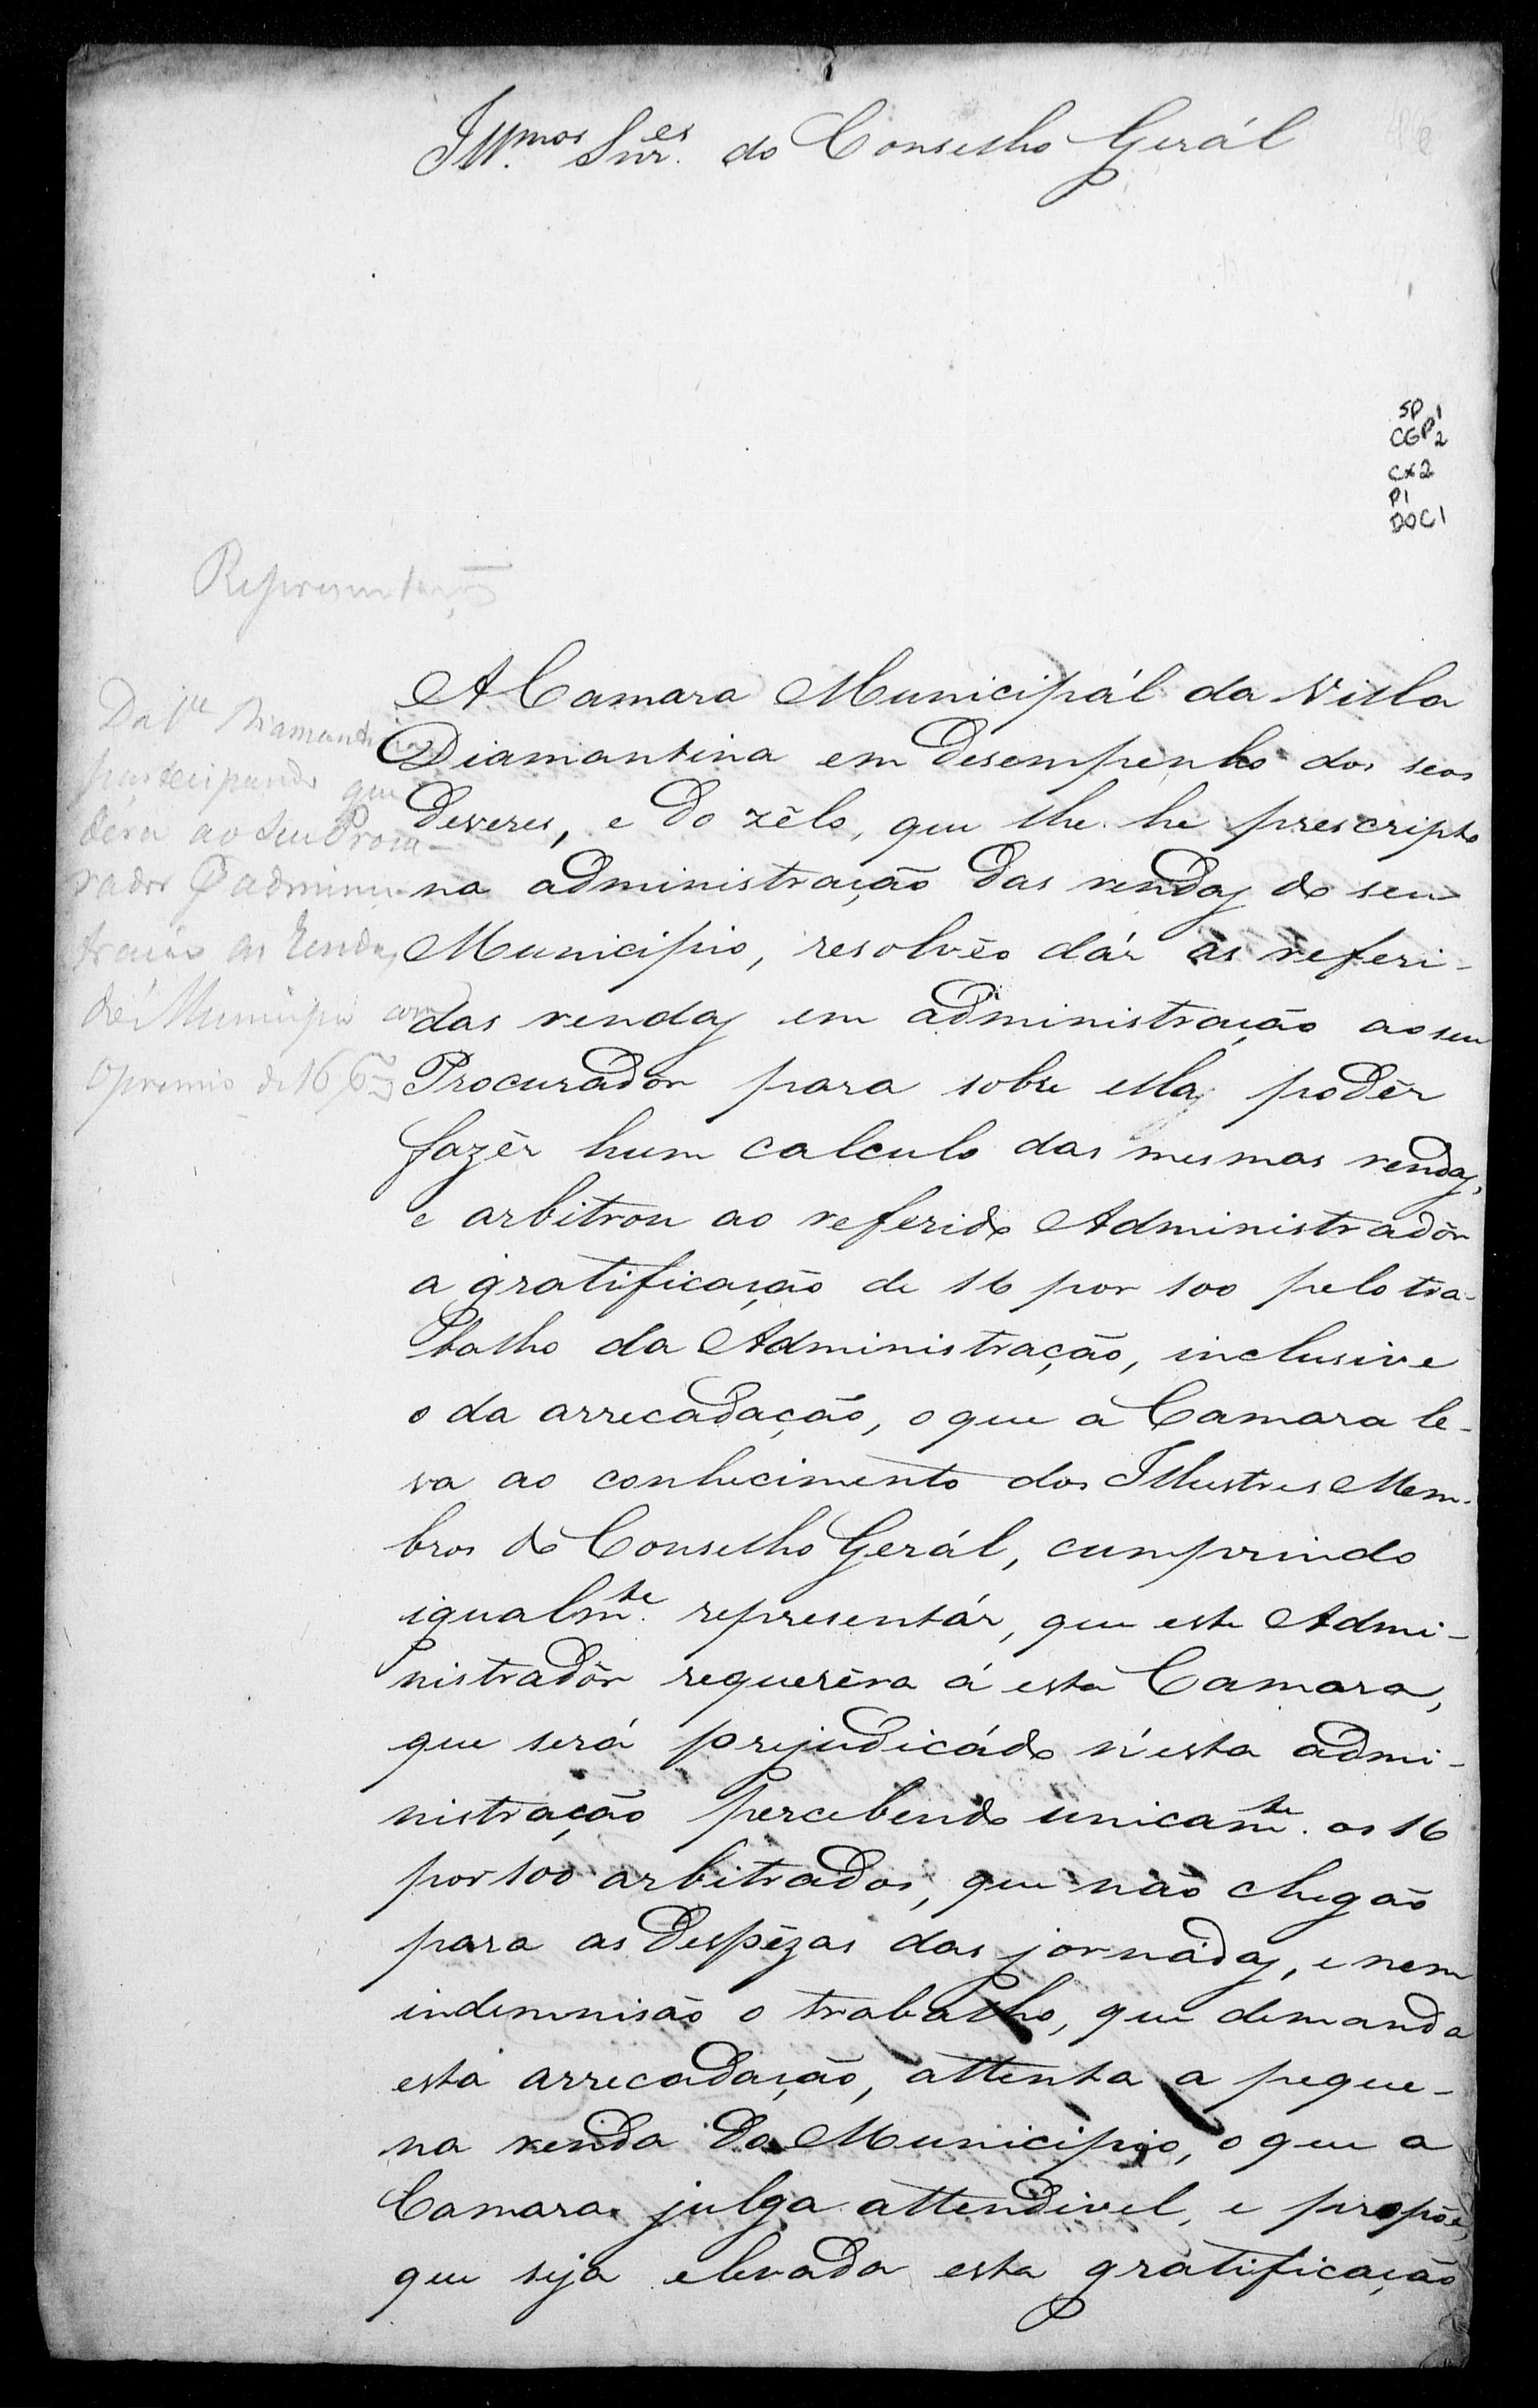 Ill.mos Snr.es do Conselho Gerál
SP 1
CGP 2
CX 2
P1
DOC 1
Representação
Da V.la Diamantina
participando que
dera ao seu Procu-
rador
as rendas
do Municipio com
o premio de 16
A Camara Municipál da Villa
Diamantina em desempenho dos seos
deveres, e do zêlo, que lhe he prescripto
na administração das rendas do seu
Municipio, resolvêo dár as referi-
das rendas em administração ao seu
Procuradôr para sobre ellas podêr
fazêr hum calculo das mesmas rendas,
e arbitrou ao referido Administradôr
a gratificação de 16 por 100 pelo tra-
balho da Administração, inclusive
o da arrecadação, o que a Camara le-
va ao conhecimento dos Illustres Mem-
bros do Conselho Gerál, cumprindo
igualm.te representár, que este Admi-
nistradôr requerêra á esta Camara,
que será prejudicádo n'esta admi-
nistração percebendo unicam.te os 16
por 100 arbitrados, que não chegão
para as despêzas das jornádas, e nem
indemnisão o trabalho, que demanda
esta arrecadação, attenta a peque-
na renda do Municipio, o que a
Camara julga attendivel, e propõe,
que seja elevada esta gratificação